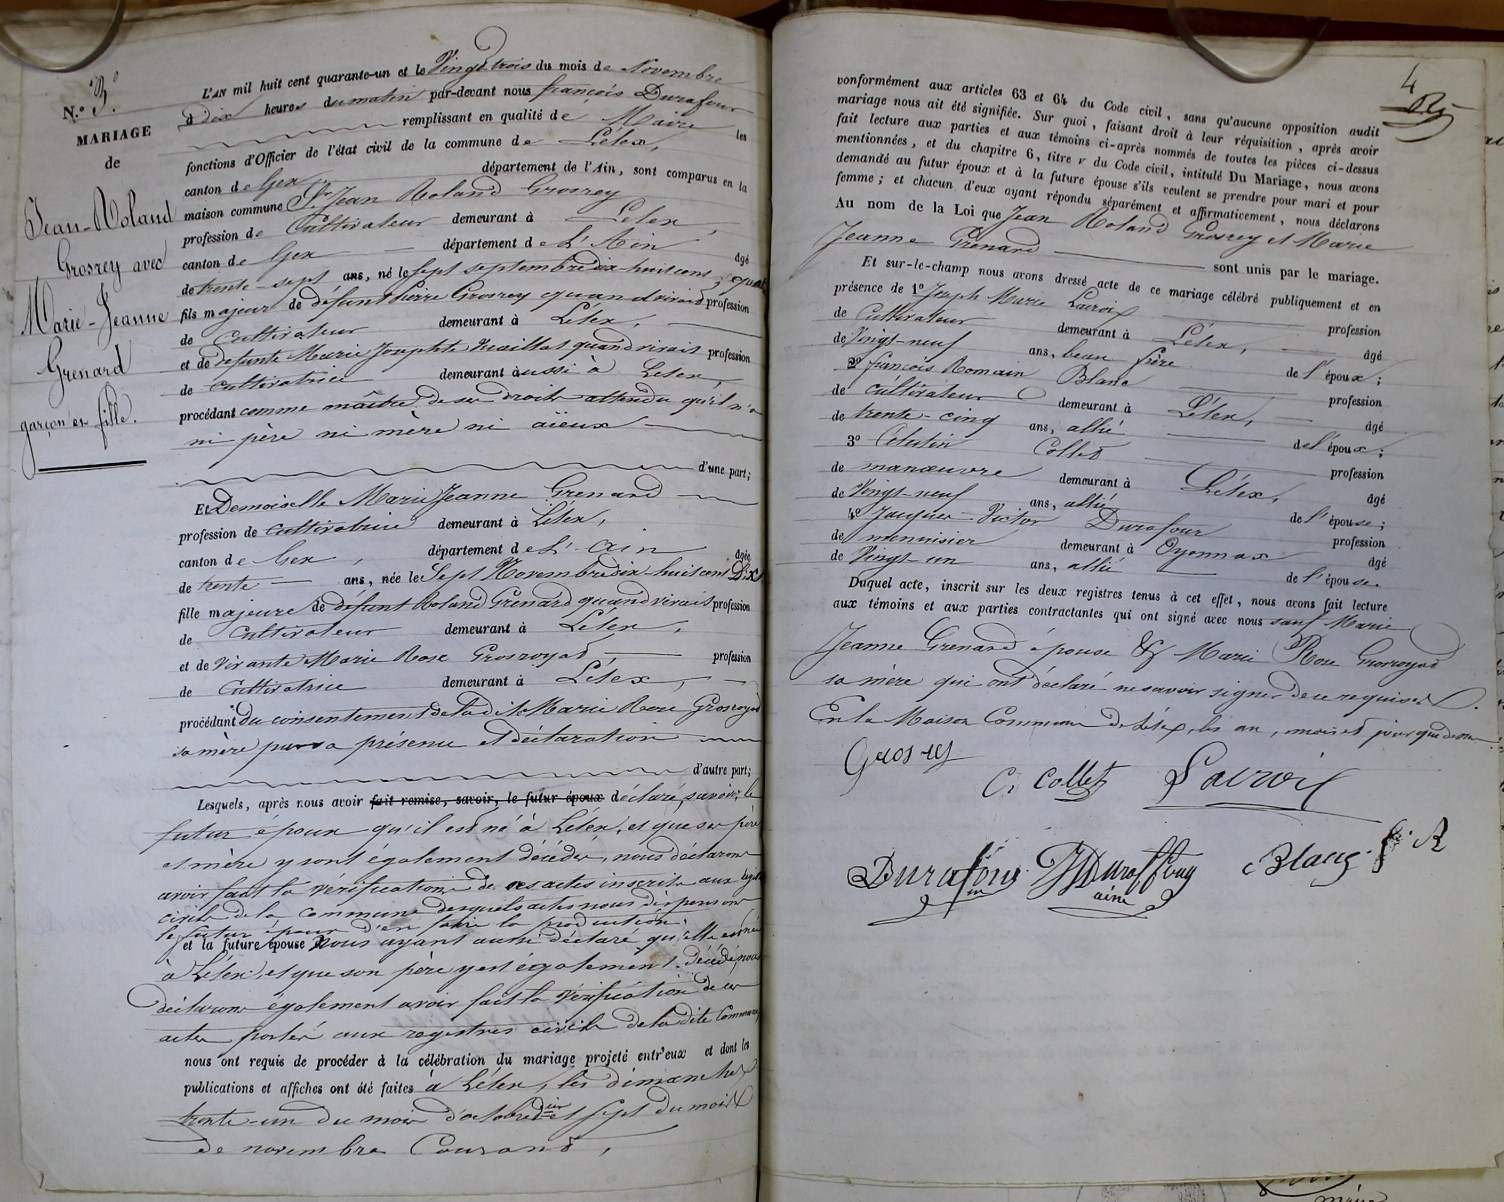 N.º 3.
MARIAGE
de
Jean-Roland
Grosrey avec
Marie-Jeanne
Grenard
garçon et fille.
L'AN mil huit cent quarante-un et le Vingt trois du mois de Novembre
à dix heures du matin par-devant nous françois Durafour
remplissant en qualité de Maire les
fonctions d'Officier de l'état civil de la commune de Lélex,
canton de Gex département de l'Ain, sont comparus en la
maison commune Sr Jean Roland Grosrey
profession de Cultivateur demeurant à Lélex,
canton de Gex département de L'Ain âgé
de trente-sept ans, né le sept septembre dix-huit cent quatre
fils majeur de défunt Pierre Grosrey quand vivait profession
de Cultivateur demeurant à Lélex,
et de défunte Marie Josephte Maillat quand vivait profession
de Cultivatrice demeurant aussi à Lélex,
procédant comme maître de ses droits attendu qu'il n'a
ni père ni mère ni aïeux
d'une part;
Et Demoiselle Marie Jeanne Grenard
profession de cultivatrice demeurant à Lélex,
canton de Gex, département de L'Ain âgée
de trente ans, née le Sept Novembre dix huit cent Dix
fille majeure de défunt Roland Grenard quand vivait profession
de Cultivateur demeurant à Lélex,
et de vivante Marie Rose Grosroyad, profession
de Cultivatrice demeurant à Lélex,
procédant du consentement de la dite Marie Rose Grosroyad
sa mère par sa présence et déclaration
d'autre part;
Lesquels, après nous avoir fait remise, savoir, le futur époux déclaré, savoir; le
futur époux qu'il est né à Lélex, et que ses père
et mère y sont également décédés, nous déclarons
avoir fait la vérification de ces actes inscrits aux
civils de la commune desquels actes nous dispensons
le futur époux d'en faire la production.
et la future épouse Nous ayant aussi déclaré qu'elle est née
à Lélex et que son père y est également décédé, nous
déclarons également avoir fait la vérification de ces
actes portés aux registres civils de la dite Commune,
nous ont requis de procéder à la célébration du mariage projeté entr'eux et dont les
publications et affiches ont été faites à Lélex, les dimanches
trente-un du mois d'octobre dernier et sept du mois
de novembre Courant,
4
conformément aux articles 63 et 64 du Code civil, sans qu'aucune opposition audit
mariage nous ait été signifiée. Sur quoi, faisant droit à leur réquisition, après avoir
fait lecture aux parties et aux témoins ci-après nommés de toutes les pièces ci-dessus
mentionnées, et du chapitre 6, titre v du Code civil, intitulé Du Mariage, nous avons
demandé au futur époux et à la future épouse s'ils veulent se prendre pour mari et pour
femme; et chacun d'eux ayant répondu séparément et affirmativement, nous déclarons
Au nom de la Loi que Jean Roland Grosrey et Marie
Jeanne Grenard sont unis par le mariage.
Et sur-le-champ nous avons dressé acte de ce mariage célébré publiquement et en
présence de 1º Joseph Marie Lacroix profession
de Cultivateur demeurant à Lélex, âgé
de Vingt-neuf ans, beau frère de l'époux;
2º françois Romain Blanc profession
de cultivateur demeurant à Lélex, âgé
de trente-cinq ans, allié de l'époux;
3º Célestin Collet profession
de manœuvre demeurant à Lélex, âgé
de Vingt-neuf ans, allié de l'épouse;
4º Jacques-Victor Durafour profession
de menuisier demeurant à Oyonnax âgé
de Vingt-un ans, allié de l'épouse.
Duquel acte, inscrit sur les deux registres tenus à cet effet, nous avons fait lecture
aux témoins et aux parties contractantes qui ont signé avec nous sauf Marie
Jeanne Grenard épouse & Marie Rose Grosroyad
sa mère qui ont déclaré ne savoir signer de ce requises.
En la Maison Commune de Lélex, les an, mois et jour que dessus.
Grosrey
C. Collet Lacroix
Durafour JV Duraffour Blanc. f. R
aîné